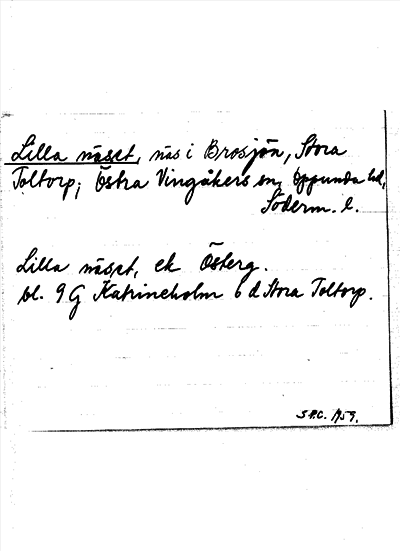 Lilla näset, näs i Brosjön, Stora
Toltorp, Östra Vingåkers sn, Oppunda hd,
Söderm. l.
Lilla näset, ek Österg.
bl. 9 G Katrineholm 6 d Stora Toltorp.
1959.